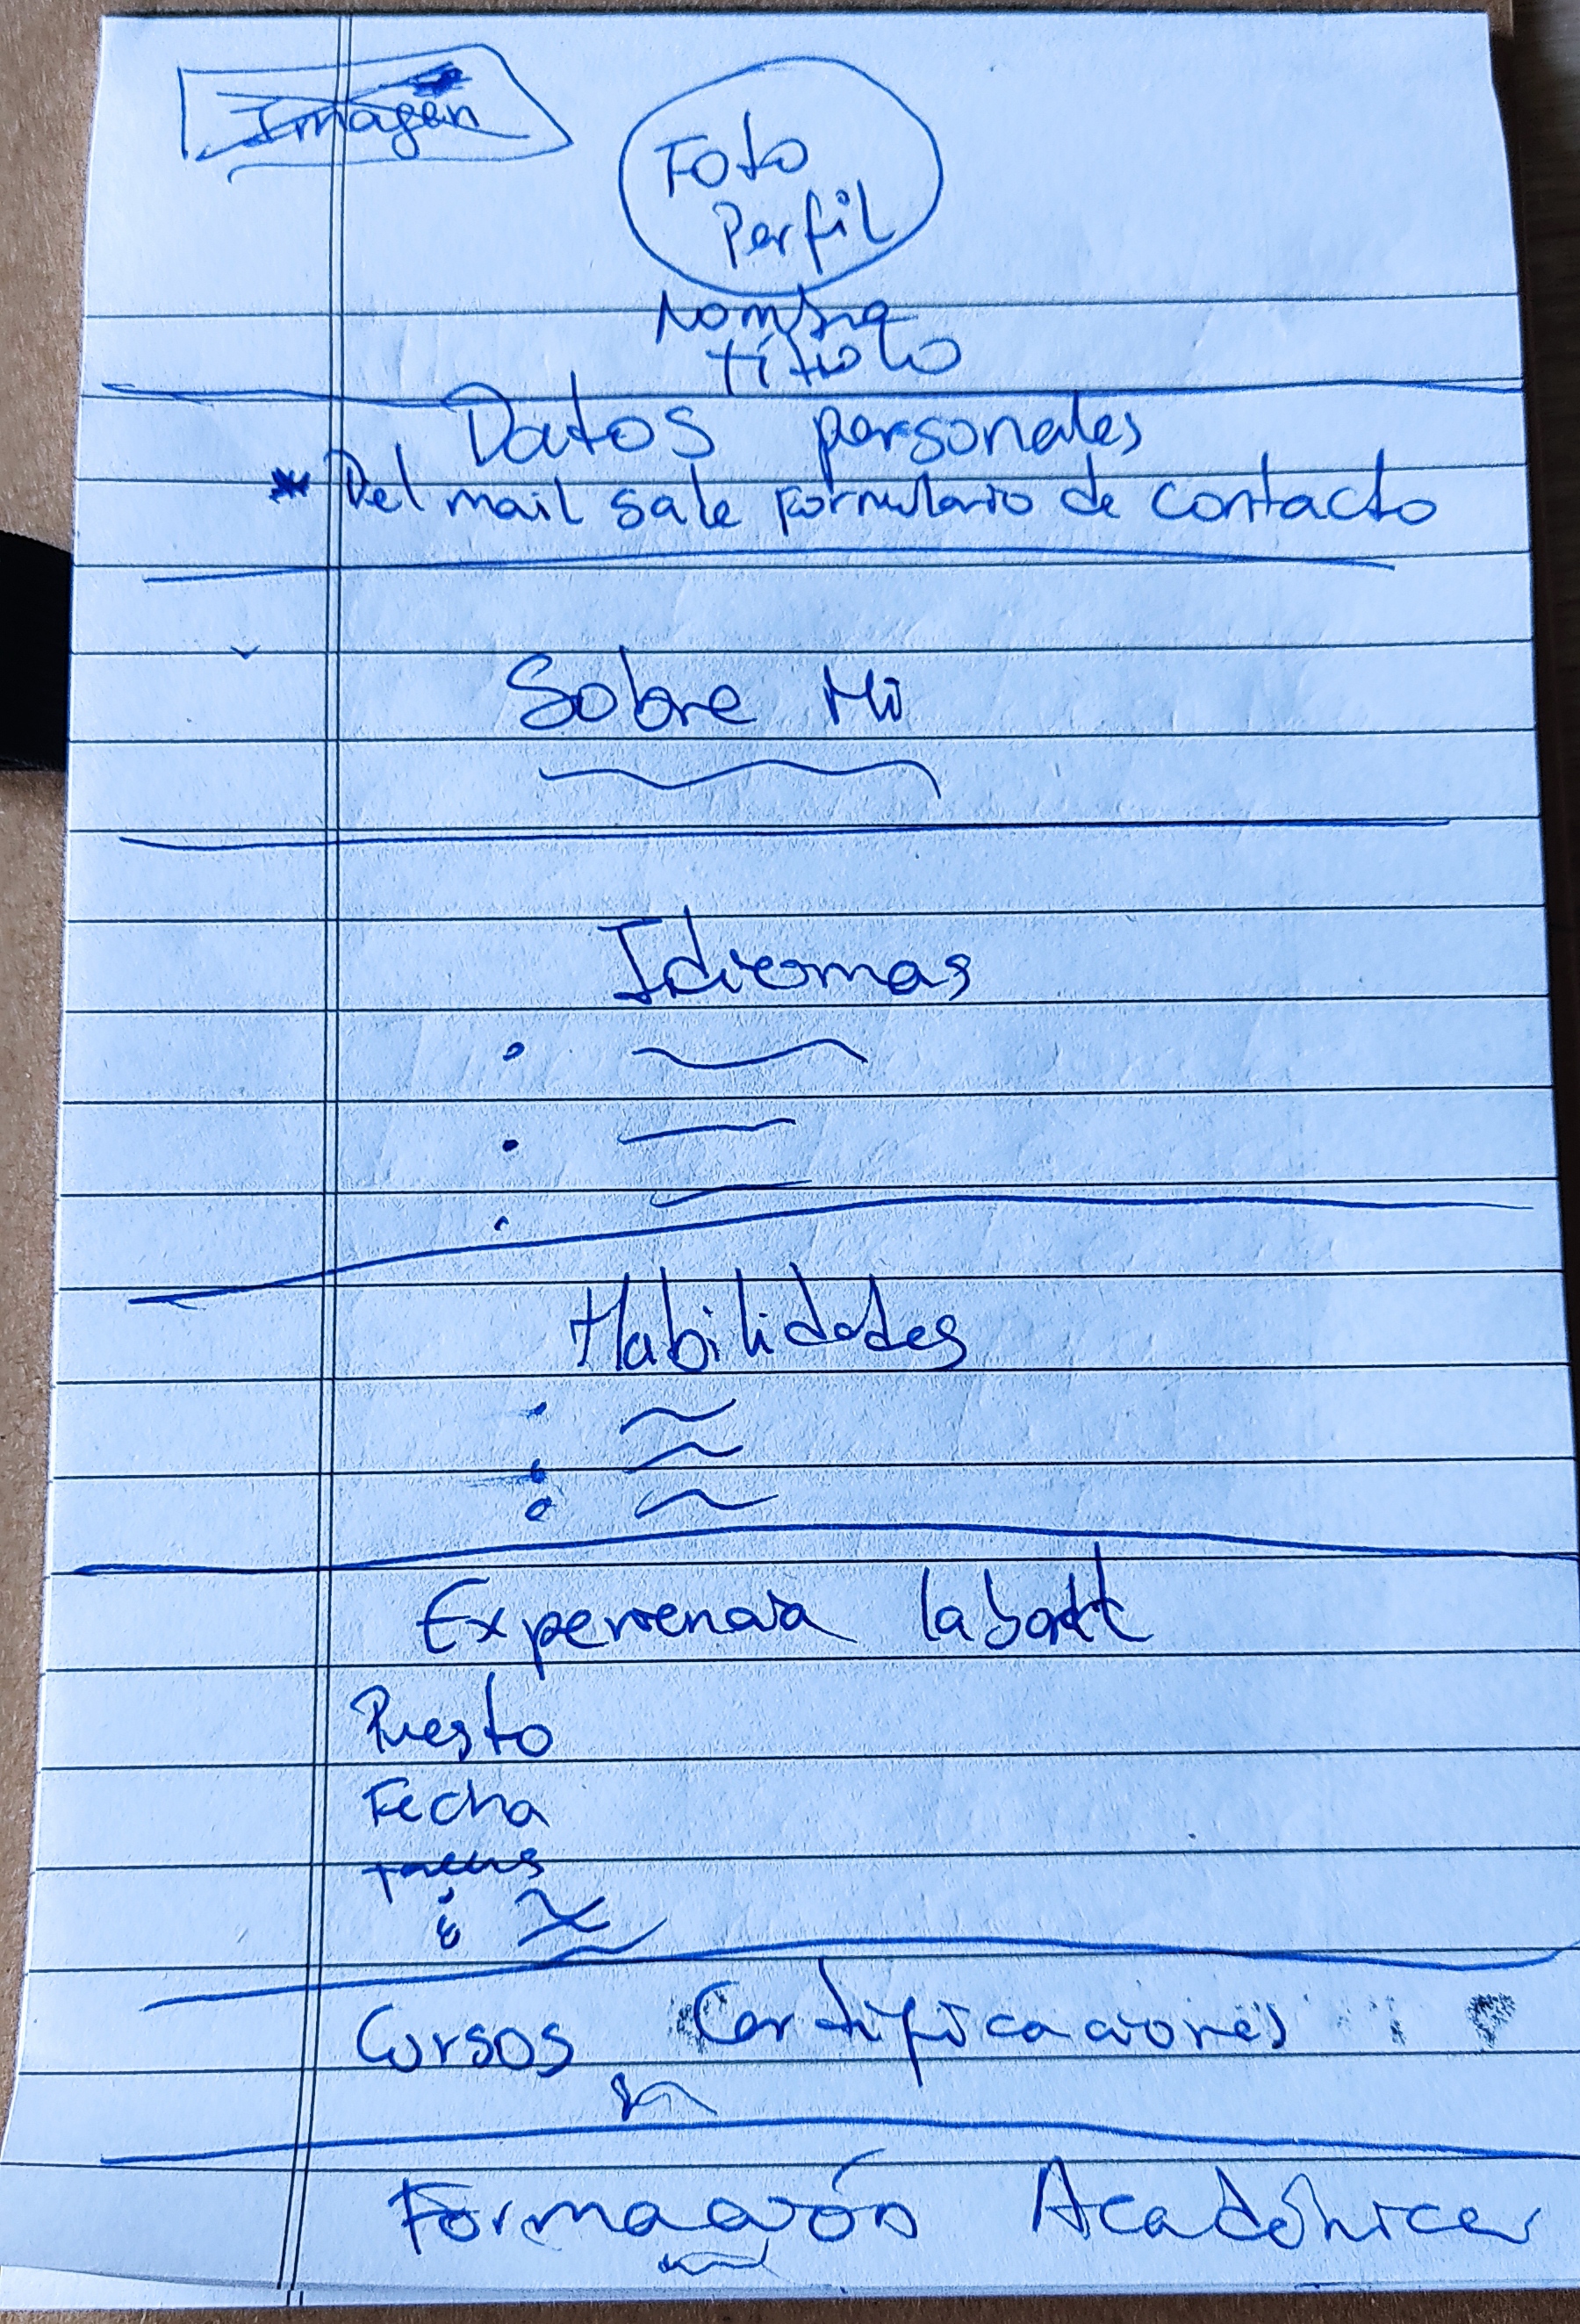 Imagen
Foto
Perfil
Nombre
título
Datos personales
* Del mail sale formulario de contacto
Sobre Mi
Idiomas
Habilidades
Experiencia laboral
Puesto
Fecha
Cursos Certificaciones
Formación Académica